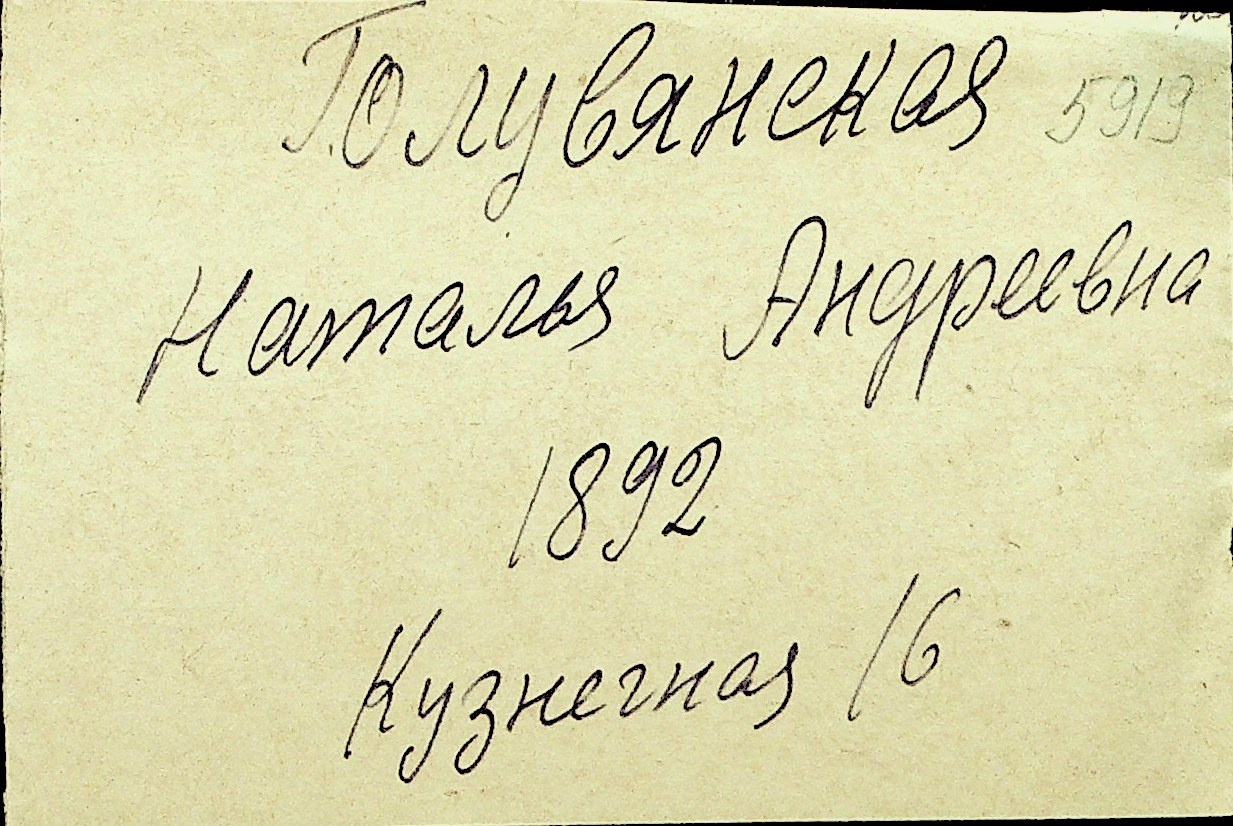 Голувянская 5919
Наталья Андреевна
1892
Кузнечная 16